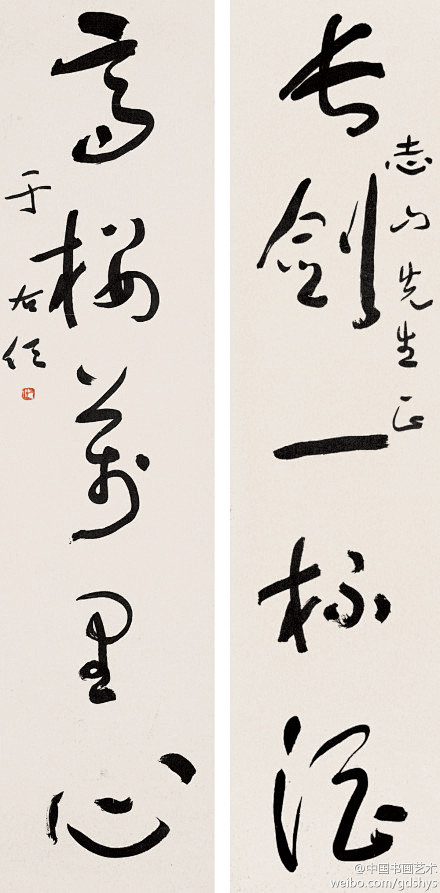 長劍一杯酒
志 先生正
高樓萬里心
于右任
@中国书画艺术
weibo.com/gdshys